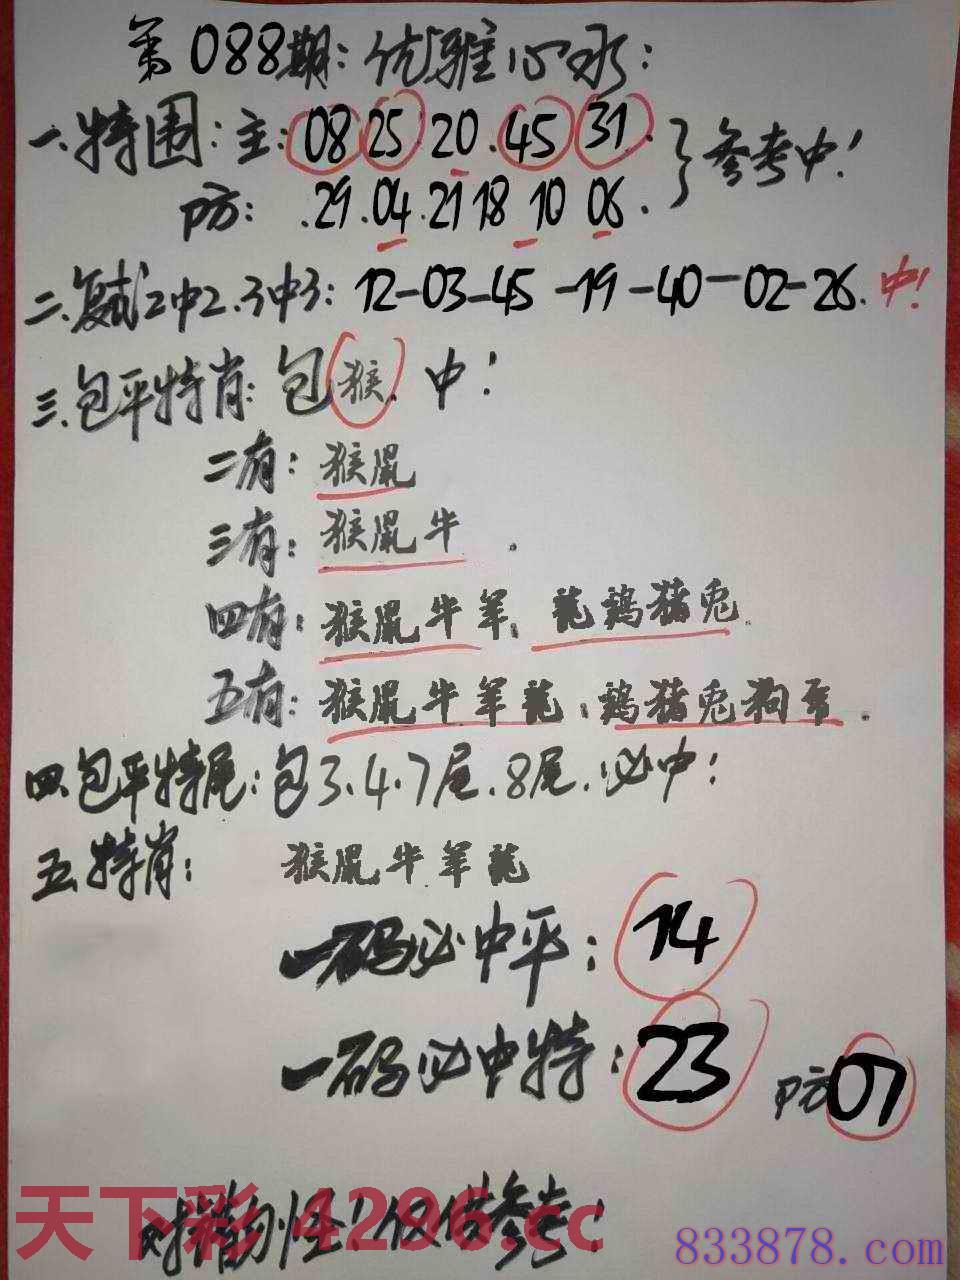 第088期:优雅心水:
一.特围:主:08 25 20.45 31.}参考中!
防:.29.04.21 18 10 06.
二.复式2中2.3中3:12-03-45-19-40-02-26.中!
三.包平特肖:包猴.中!
二有:猴鼠
三有:猴鼠牛.
四有:猴鼠牛羊.龍鷄猪兔.
五有:猴鼠牛羊龍;鷄猪兔狗.
四.包平特尾:包3.4.7尾.8尾.必中!
五.特肖:猴鼠牛羊龍
一码必中平:14
一码必中特:23 防07
天下彩 4296.cc
错勿怪!仅供参考!
833878.com